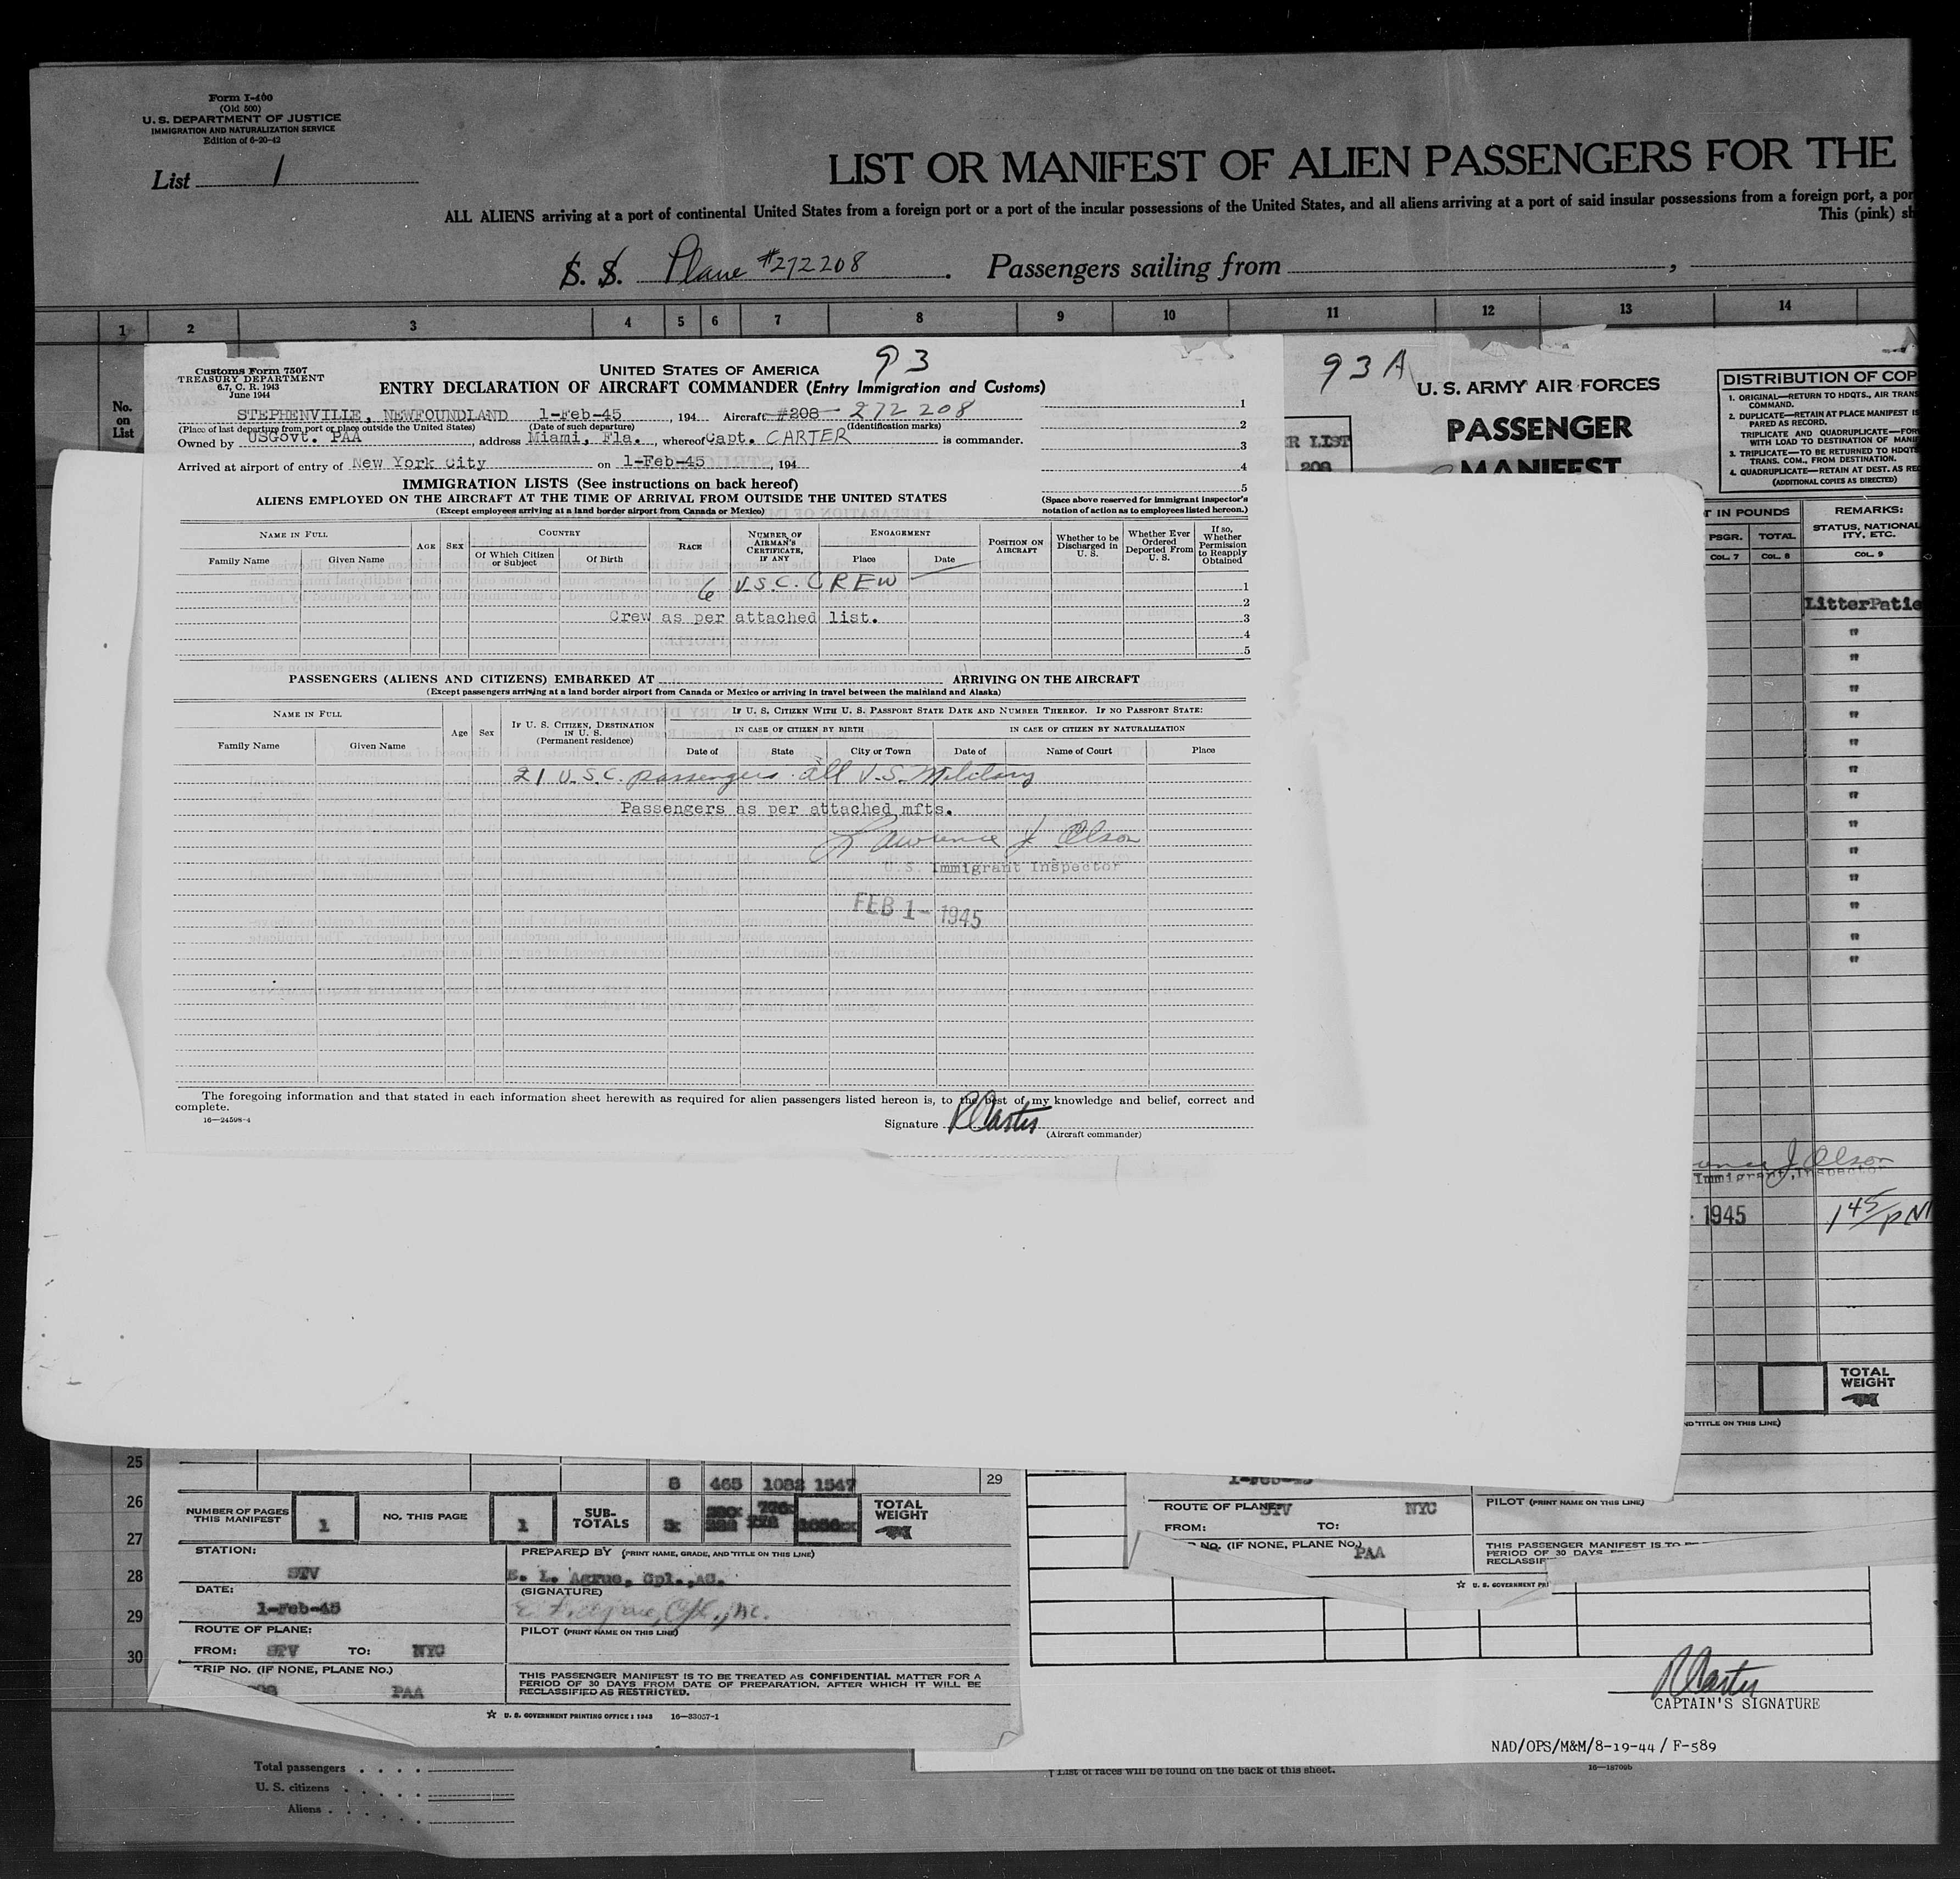 Form I-400
(Old 500)
U. S. DEPARTMENT OF JUSTICE
IMMIGRATION AND NATURALIZATION SERVICE
Edition of 6-20-42
List 1
LIST OR MANIFEST OF ALIEN PASSENGERS FOR THE
ALL ALIENS arriving at a port of continental United States from a foreign port or a port of the insular possessions of the United States, and all aliens arriving at a port of said insular possessions from a foreign port, a por
This (pink) sh
S. S. Plane #272208 . Passengers sailing from ,
1 2 3 4 5 6 7 8 9 10 11 12 13 14
No. on List
93
Customs Form 7507
TREASURY DEPARTMENT
6.7, C. R. 1943
June 1944
UNITED STATES OF AMERICA
ENTRY DECLARATION OF AIRCRAFT COMMANDER (Entry Immigration and Customs)
STEPHENVILLE, NEWFOUNDLAND 1-Feb-45 , 194 Aircraft #208 272 208
(Place of last departure from port or place outside the United States) (Date of such departure) (Identification marks)
Owned by USGovt. PAA , address Miami, Fla. , whereof Capt. CARTER is commander.
Arrived at airport of entry of New York City on 1-Feb-45 , 194
1
2
3
4
5
IMMIGRATION LISTS (See instructions on back hereof)
ALIENS EMPLOYED ON THE AIRCRAFT AT THE TIME OF ARRIVAL FROM OUTSIDE THE UNITED STATES
(Except employees arriving at a land border airport from Canada or Mexico)
(Space above reserved for immigrant inspector's notation of action as to employees listed hereon.)
NAME IN FULL
Family Name Given Name
AGE SEX
COUNTRY
Of Which Citizen or Subject Of Birth
RACE
NUMBER OF AIRMAN'S CERTIFICATE, IF ANY
ENGAGEMENT
Place Date
POSITION ON AIRCRAFT
Whether to be Discharged in U. S.
Whether Ever Ordered Deported From U. S.
If so, Whether Permission to Reapply Obtained
6 U.S.C. CREW 1
2
Crew as per attached list. 3
4
5
PASSENGERS (ALIENS AND CITIZENS) EMBARKED AT ARRIVING ON THE AIRCRAFT
(Except passengers arriving at a land border airport from Canada or Mexico or arriving in travel between the mainland and Alaska)
NAME IN FULL
Family Name Given Name
Age Sex
IF U. S. CITIZEN, DESTINATION IN U. S. (Permanent residence)
IF U. S. CITIZEN WITH U. S. PASSPORT STATE DATE AND NUMBER THEREOF. IF NO PASSPORT STATE:
IN CASE OF CITIZEN BY BIRTH IN CASE OF CITIZEN BY NATURALIZATION
Date of State City or Town Date of Name of Court Place
21 U.S.C. passengers all U.S. Military
Passengers as per attached mfts.
Lawrence J. Olson
U.S. Immigrant Inspector
FEB 1- 1945
The foregoing information and that stated in each information sheet herewith as required for alien passengers listed hereon is, to the best of my knowledge and belief, correct and complete.
16—24598-4
Signature R Carter
(Aircraft commander)
93A
U. S. ARMY AIR FORCES
PASSENGER
MANIFEST
R LIST
208
DISTRIBUTION OF COP
1. ORIGINAL—RETURN TO HDQTS., AIR TRANS
COMMAND.
2. DUPLICATE—RETAIN AT PLACE MANIFEST IS
PARED AS RECORD.
TRIPLICATE AND QUADRUPLICATE—FOR
WITH LOAD TO DESTINATION OF MANIF
3. TRIPLICATE—TO BE RETURNED TO HDQTS
TRANS. COM., FROM DESTINATION.
4. QUADRUPLICATE—RETAIN AT DEST. AS REC
(ADDITIONAL COPIES AS DIRECTED)
T IN POUNDS
PSGR. TOTAL
COL. 7 COL. 8
REMARKS:
STATUS, NATIONAL-
ITY, ETC.
COL. 9
LitterPatie
"
"
"
"
"
"
"
"
"
"
"
"
"
J Olson
Immigrant Inspector
1945
1 45/PM
TOTAL WEIGHT
ND TITLE ON THIS LINE)
25
26
27
28
29
30
8 465 1082 1547
29
NUMBER OF PAGES THIS MANIFEST 1
NO. THIS PAGE 1
SUB-TOTALS
TOTAL WEIGHT
STATION:
STV
PREPARED BY (PRINT NAME, GRADE, AND TITLE ON THIS LINE)
E. L. Agrue, Cpl.,AC.
DATE:
1-Feb-45
(SIGNATURE)
E. L. Agrue, Cpl., AC.
ROUTE OF PLANE:
FROM: STV TO: NYC
PILOT (PRINT NAME ON THIS LINE)
TRIP NO. (IF NONE, PLANE NO.)
PAA
THIS PASSENGER MANIFEST IS TO BE TREATED AS CONFIDENTIAL MATTER FOR A
PERIOD OF 30 DAYS FROM DATE OF PREPARATION, AFTER WHICH IT WILL BE
RECLASSIFIED AS RESTRICTED.
☆ U. S. GOVERNMENT PRINTING OFFICE : 1943 16—33057-1
1-Feb-45
ROUTE OF PLANE:
STV NYC
FROM: TO:
PILOT (PRINT NAME ON THIS LINE)
NO. (IF NONE, PLANE NO.)
PAA
THIS PASSENGER MANIFEST IS TO
PERIOD OF 30 DAYS
RECLASSIF
☆ U. S. GOVERNMENT PRI
R Carter
CAPTAIN'S SIGNATURE
NAD/OPS/M&M/8-19-44 / F-589
Total passengers
U. S. citizens
Aliens
† List of races will be found on the back of this sheet.
16—18700b